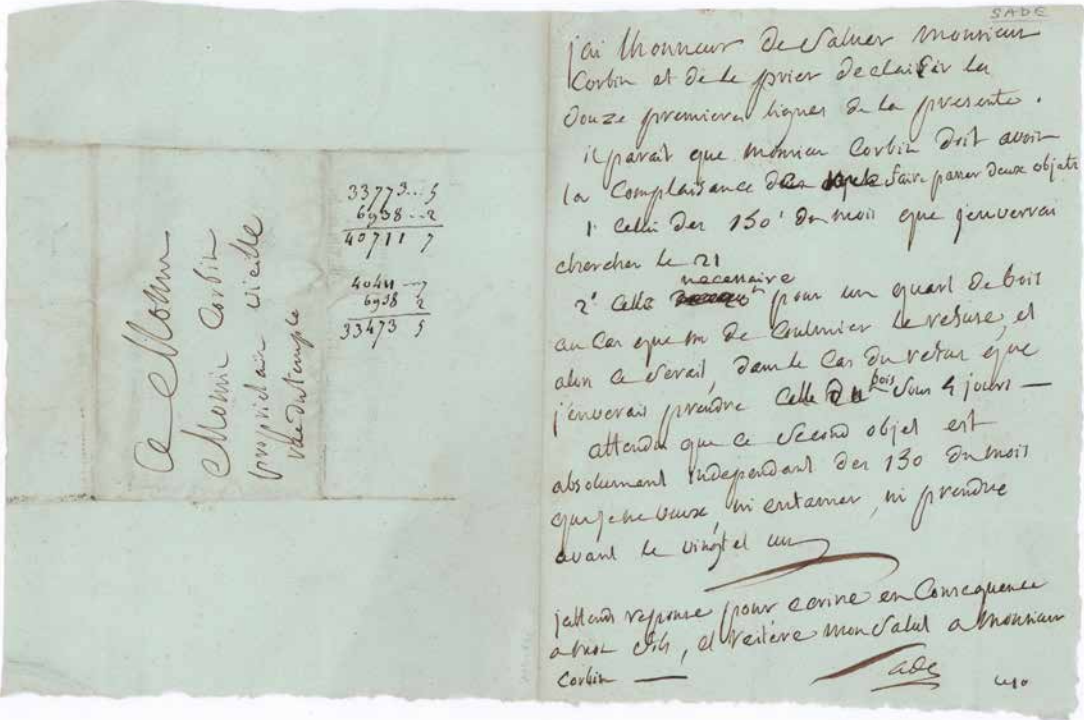 A Monsieur
Monsieur Corbin
propriétaire vieille
rue du temple
33773...5
6938...2
40711 7
40411...7
6938 2
33473 5
SADE
jai lhonneur de Saluer monsieur
Corbin et de le prier declaircir les
douze premieres lignes de la presente.
il parait que monsieur Corbin doit avoir
la Complaisance de faire passer deux objets
1° Celui des 150 du mois que jenverrai
chercher le 21
necessaire
2° Celle pour un quart de bois
au Cas que m de Coulmier le refuse, et
alors ce Serait, dans le Cas du refus que
jenverais prendre Celle du bois Sous 4 jours —
attendu que ce Second objet est
absolument independant des 150 du mois
que je ne veux, ni entamer, ni prendre
avant le vingt et un
jattends reponse pour ecrire en Consequence
a mon fils, et reitère mon Salut a monsieur
Corbin —
Sade